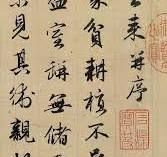 来并序
家貧耕植不
盈室缾無儲
見其術親